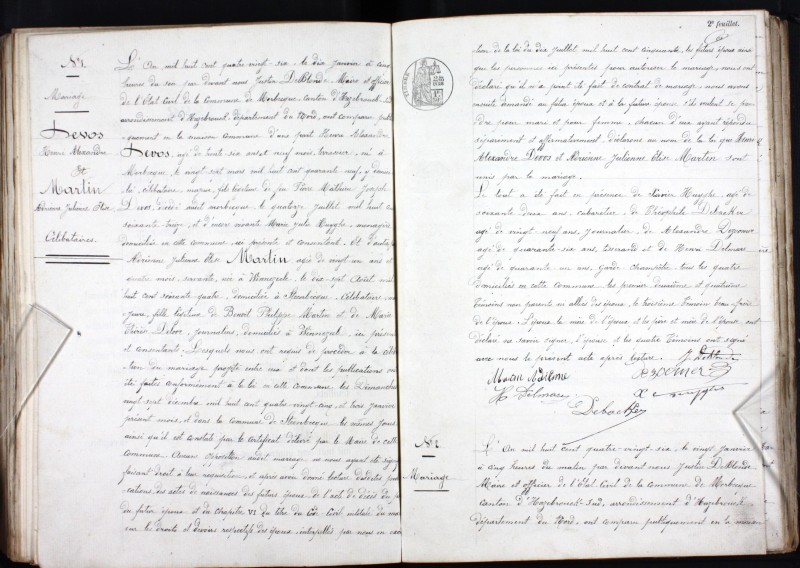 N° 1.
Mariage
Devos
Henri Alexandre
Et
Martin
Adrienne Julienne Elise
Célibataires.
L'An mil huit cent quatre vingt-six, le dix janvier à cinq
heures du soir par devant nous Justin DeBlonde Maire et officier
de l'Etat Civil de la Commune de Morbecque, canton d'Hazebrouck Sud
arrondissement d'Hazebrouck, département du Nord, ont comparu publi-
quement en la maison commune d'une part Henri Alexandre
Devos, âgé de trente six ans et neuf mois, terrassier, né à
Morbecque le vingt sept mars mil huit cent quarante neuf, y domici-
lié, célibataire, majeur, fils légitime de feu Pierre Mathieu Joseph
Devos, décédé audit Morbecque le quatorze juillet mil huit cent
soixante treize, et d'encore vivante Marie Julie Huyghe, ménagère
domiciliée en cette commune, ici présente et consentante. Et d'autre
Adrienne Julienne Elise Martin âgée de vingt un ans et
quatre mois, servante, née à Winnezeele, le dix sept Août mil
huit cent soixante quatre, domiciliée à Steenbecque, célibataire
fille légitime de Benoit Philippe Martin et de Marie
Thérèse Deboo, journaliers, domiciliés à Winnezeele, ici présents
et consentants. Lesquels nous ont requis de procéder à la célé-
bration du mariage projeté entre eux et dont les publications ont
été faites conformément à la loi en cette commune les Dimanches
vingt sept décembre mil huit cent quatre-vingt-cinq, et trois janvier
présent mois, et dans la commune de Steenbecque les mêmes jours
ainsi qu'il est constaté par le certificat délivré par le Maire de cette
commune. Aucune opposition audit mariage ne nous ayant été signi-
faisant droit à leur réquisition, et après avoir donné lecture desdites publi-
cations, des actes de naissances des futurs époux, de l'acte de décès du père
du futur époux et du chapitre VI du titre du Code Civil, intitulé du mariage
sur les droits et devoirs respectifs des époux, interpellés par nous en exécu-
2e feuillet.
tion de la loi du dix juillet mil huit cent cinquante, les futurs époux ainsi
que les personnes ici présentes pour autoriser le mariage, nous ont
déclaré qu'il n'a point été fait de contrat de mariage. nous avons
ensuite demandé au futur époux et à la future épouse s'ils veulent se pren-
dre pour mari et pour femme, chacun d'eux ayant répondu
séparément et affirmativement, déclarons au nom de la loi que Henri
Alexandre Devos et Adrienne Julienne Elise Martin sont
unis par le mariage.
Le tout a été fait en présence de Xavier Huyghe âgé de
soixante deux ans, cabaretier, de Théophile Debacker
âgé de vingt neuf ans, journalier, de Alexandre
âgé de quarante-six ans, tisserand et de Henri Delmare
âgé de quarante un ans, garde champêtre, tous les quatre
domiciliés en cette commune, les premier, deuxième et quatrième
témoins non parents ni alliés des époux, le troisième témoin beau frère
de l'époux. L'époux, la mère de l'époux et les père et mère de l'épouse ont
déclaré ne savoir signer. L'épouse et les quatre témoins ont signé
avec nous le présent acte après lecture. J. DeBlonde
Martin Adrienne
H. Delmare
X. Huyghe
Debacker
N° 2.
Mariage
L'An mil huit cent quatre-vingt-six, le vingt janvier
à cinq heures du matin par devant nous Justin DeBlonde
Maire et officier de l'Etat Civil de la Commune de Morbecque
canton d'Hazebrouck-Sud, arrondissement d'Hazebrouck
département du Nord, ont comparu publiquement en la maison